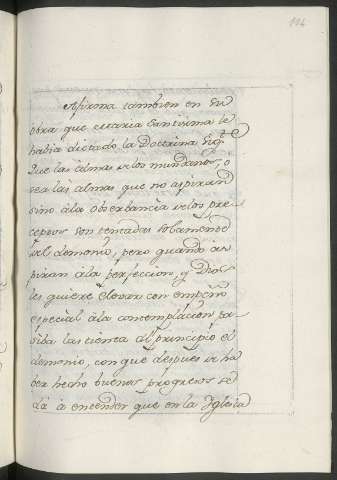 114
Afirma tambien en su
obra que estaria Santisima le
habia dictado la Doctrina sig.te
Que las almas de los mundanos, o
sea las almas que no aspiran
sino à la observancia de los pre-
ceptos son tentadas solamente
del demonio, pero quando as-
piran à la perfeccion, y Dios
les quiere elevar con empeño
especial à la contemplacion pa-
siba las tienta al principio el
demonio, con que despues de ha
ber hecho buenos progresos se
dà à entender que en la Yglesia